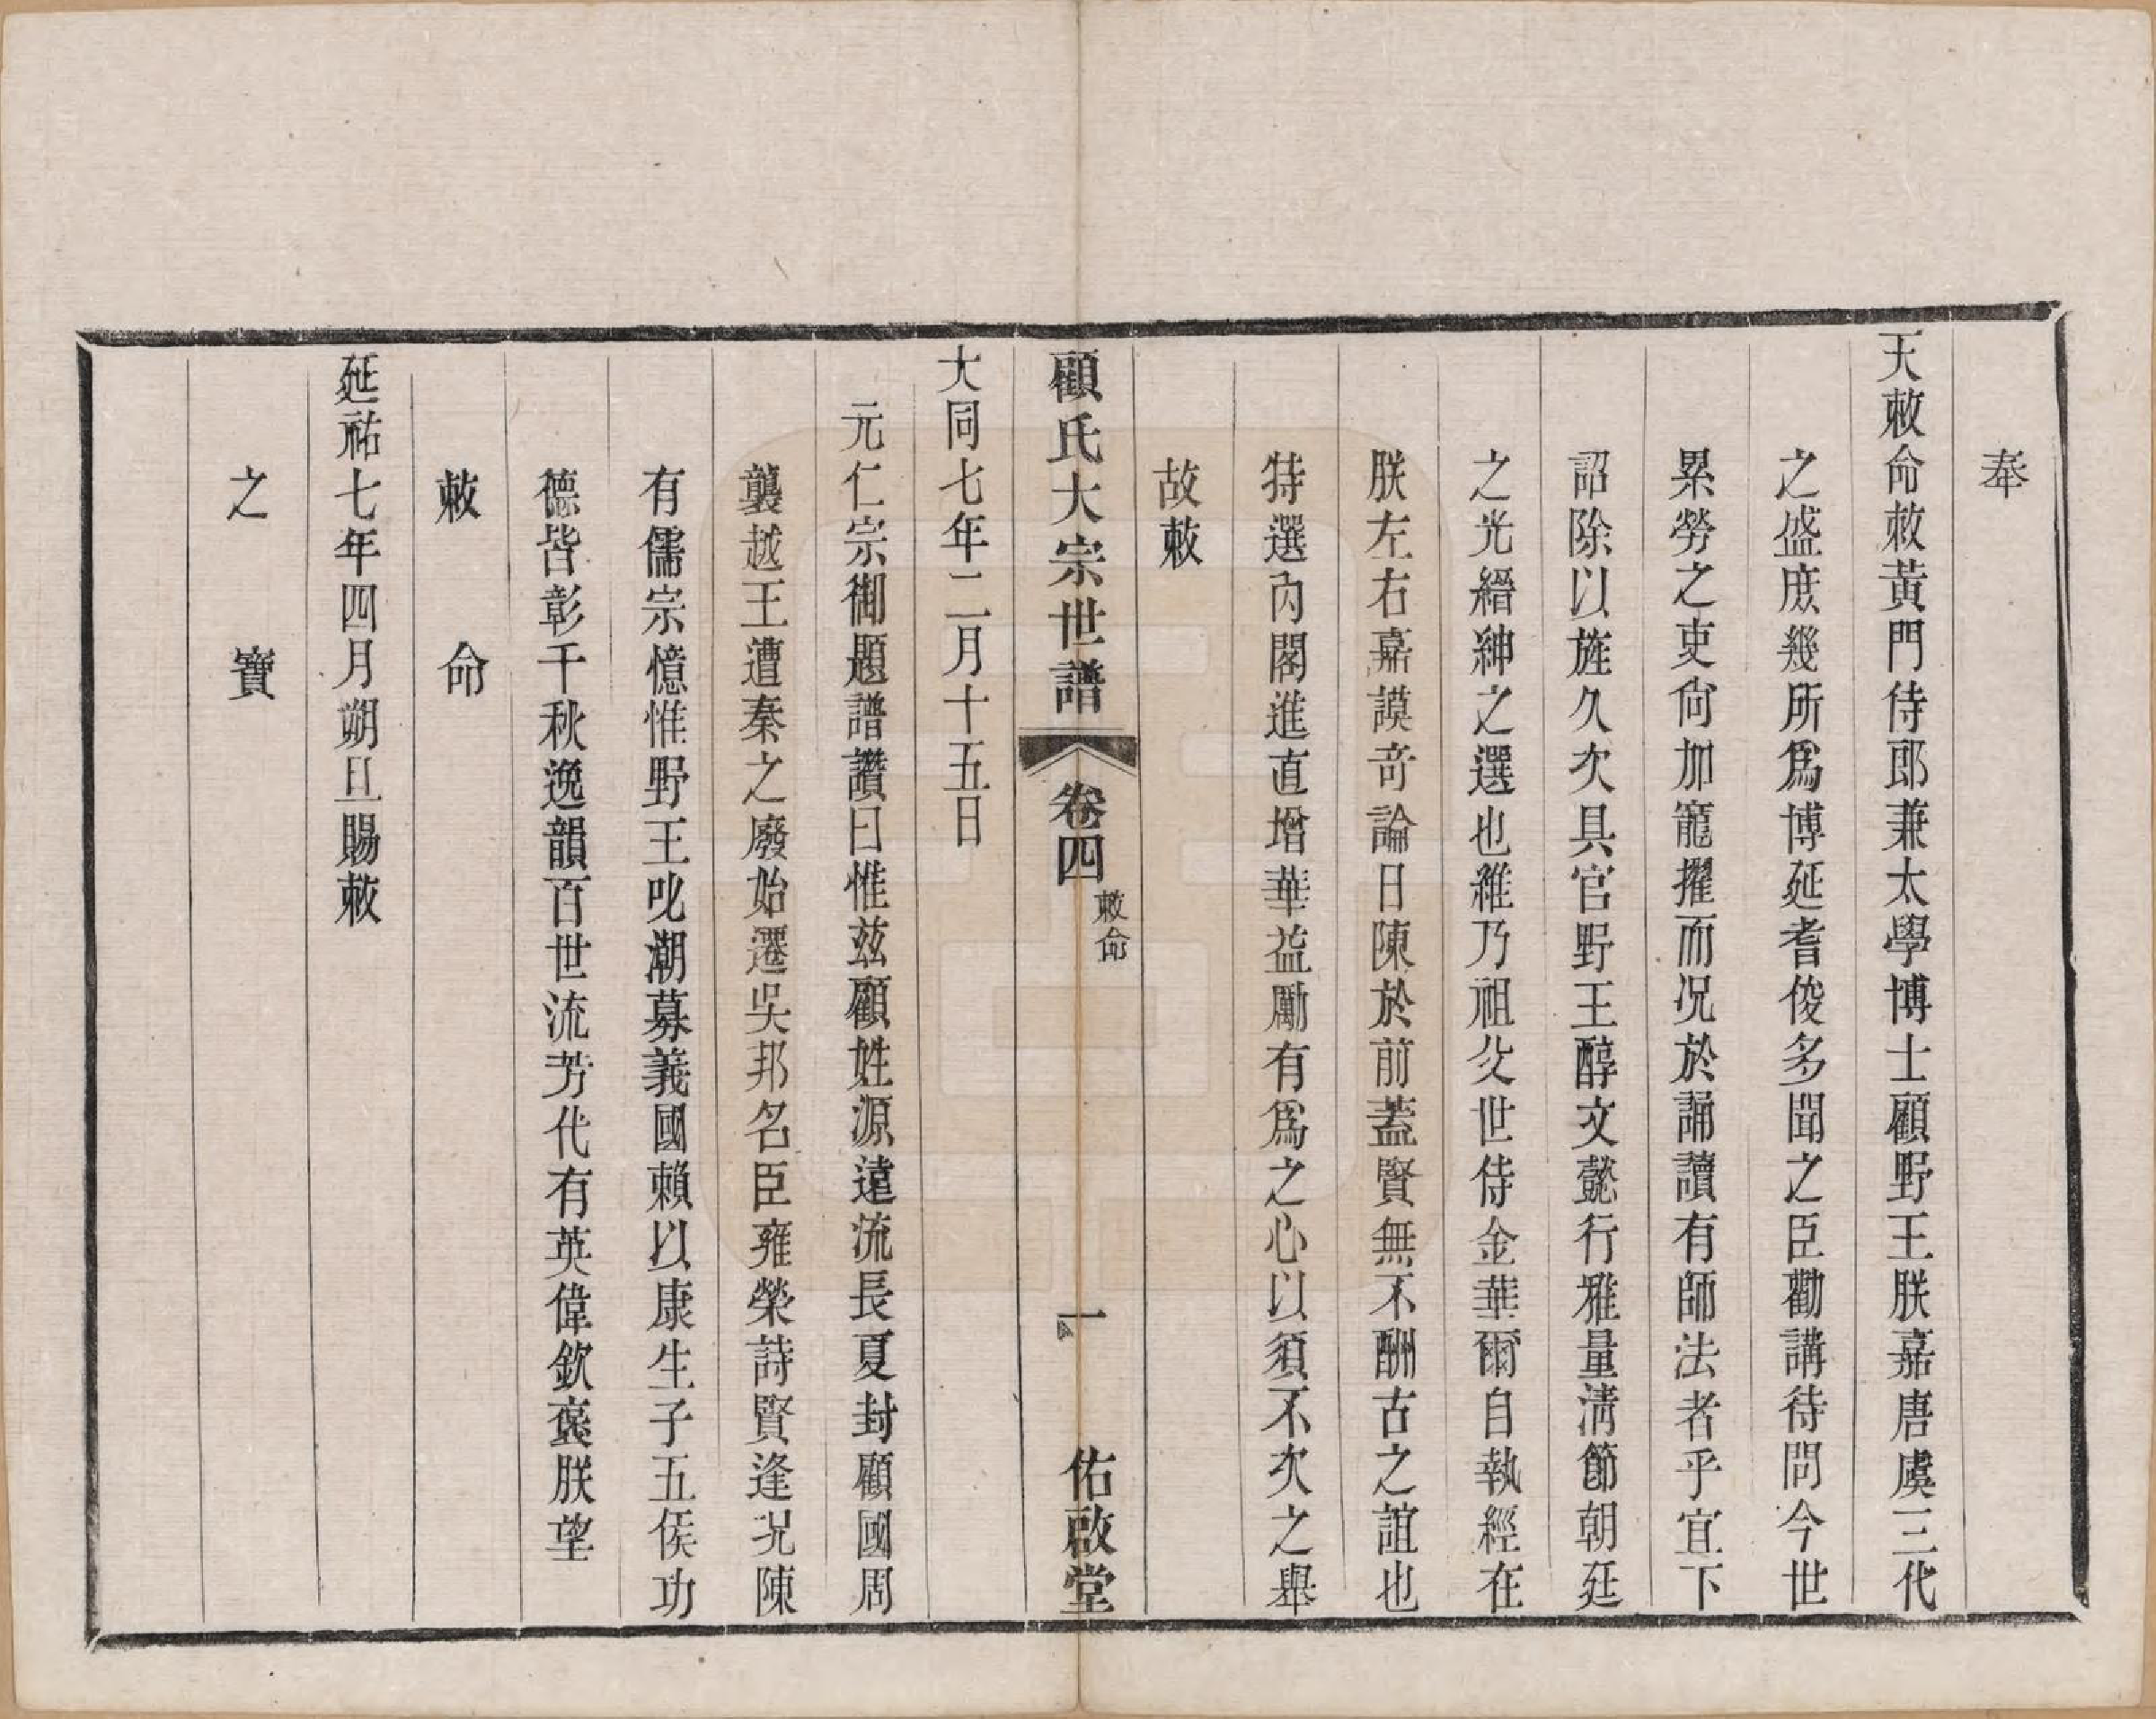 奉
天敕命敕黃門侍郎兼太學博士顧野王朕嘉唐虞三代
之盛庶幾所爲博延耆俊多聞之臣勸講待問今世
累勞之吏尙加寵擢而况於誦讀有師法者乎宜下
詔除以旌久次具官野王醇文懿行雅量淸節朝廷
之光縉紳之選也維乃祖父世侍金華爾自執經在
朕左右嘉謨奇論日陳於前蓋賢無不酬古之誼也
特選內閣進直增華益勵有爲之心以須不次之舉
故敕
顧氏大宗世譜 卷四 敕命 一 佑啟堂
大同七年二月十五日
元仁宗御題譜讚曰惟玆顧姓源遠流長夏封顧國周
襲越王遭秦之廢始遷吳邦名臣雍榮詩賢逢況陳
有儒宗憶惟野王叱潮募義國賴以康生子五侯功
德皆彰千秋逸韻百世流芳代有英偉欽褒朕望
敕命
延祐七年四月朔旦賜敕
之寶